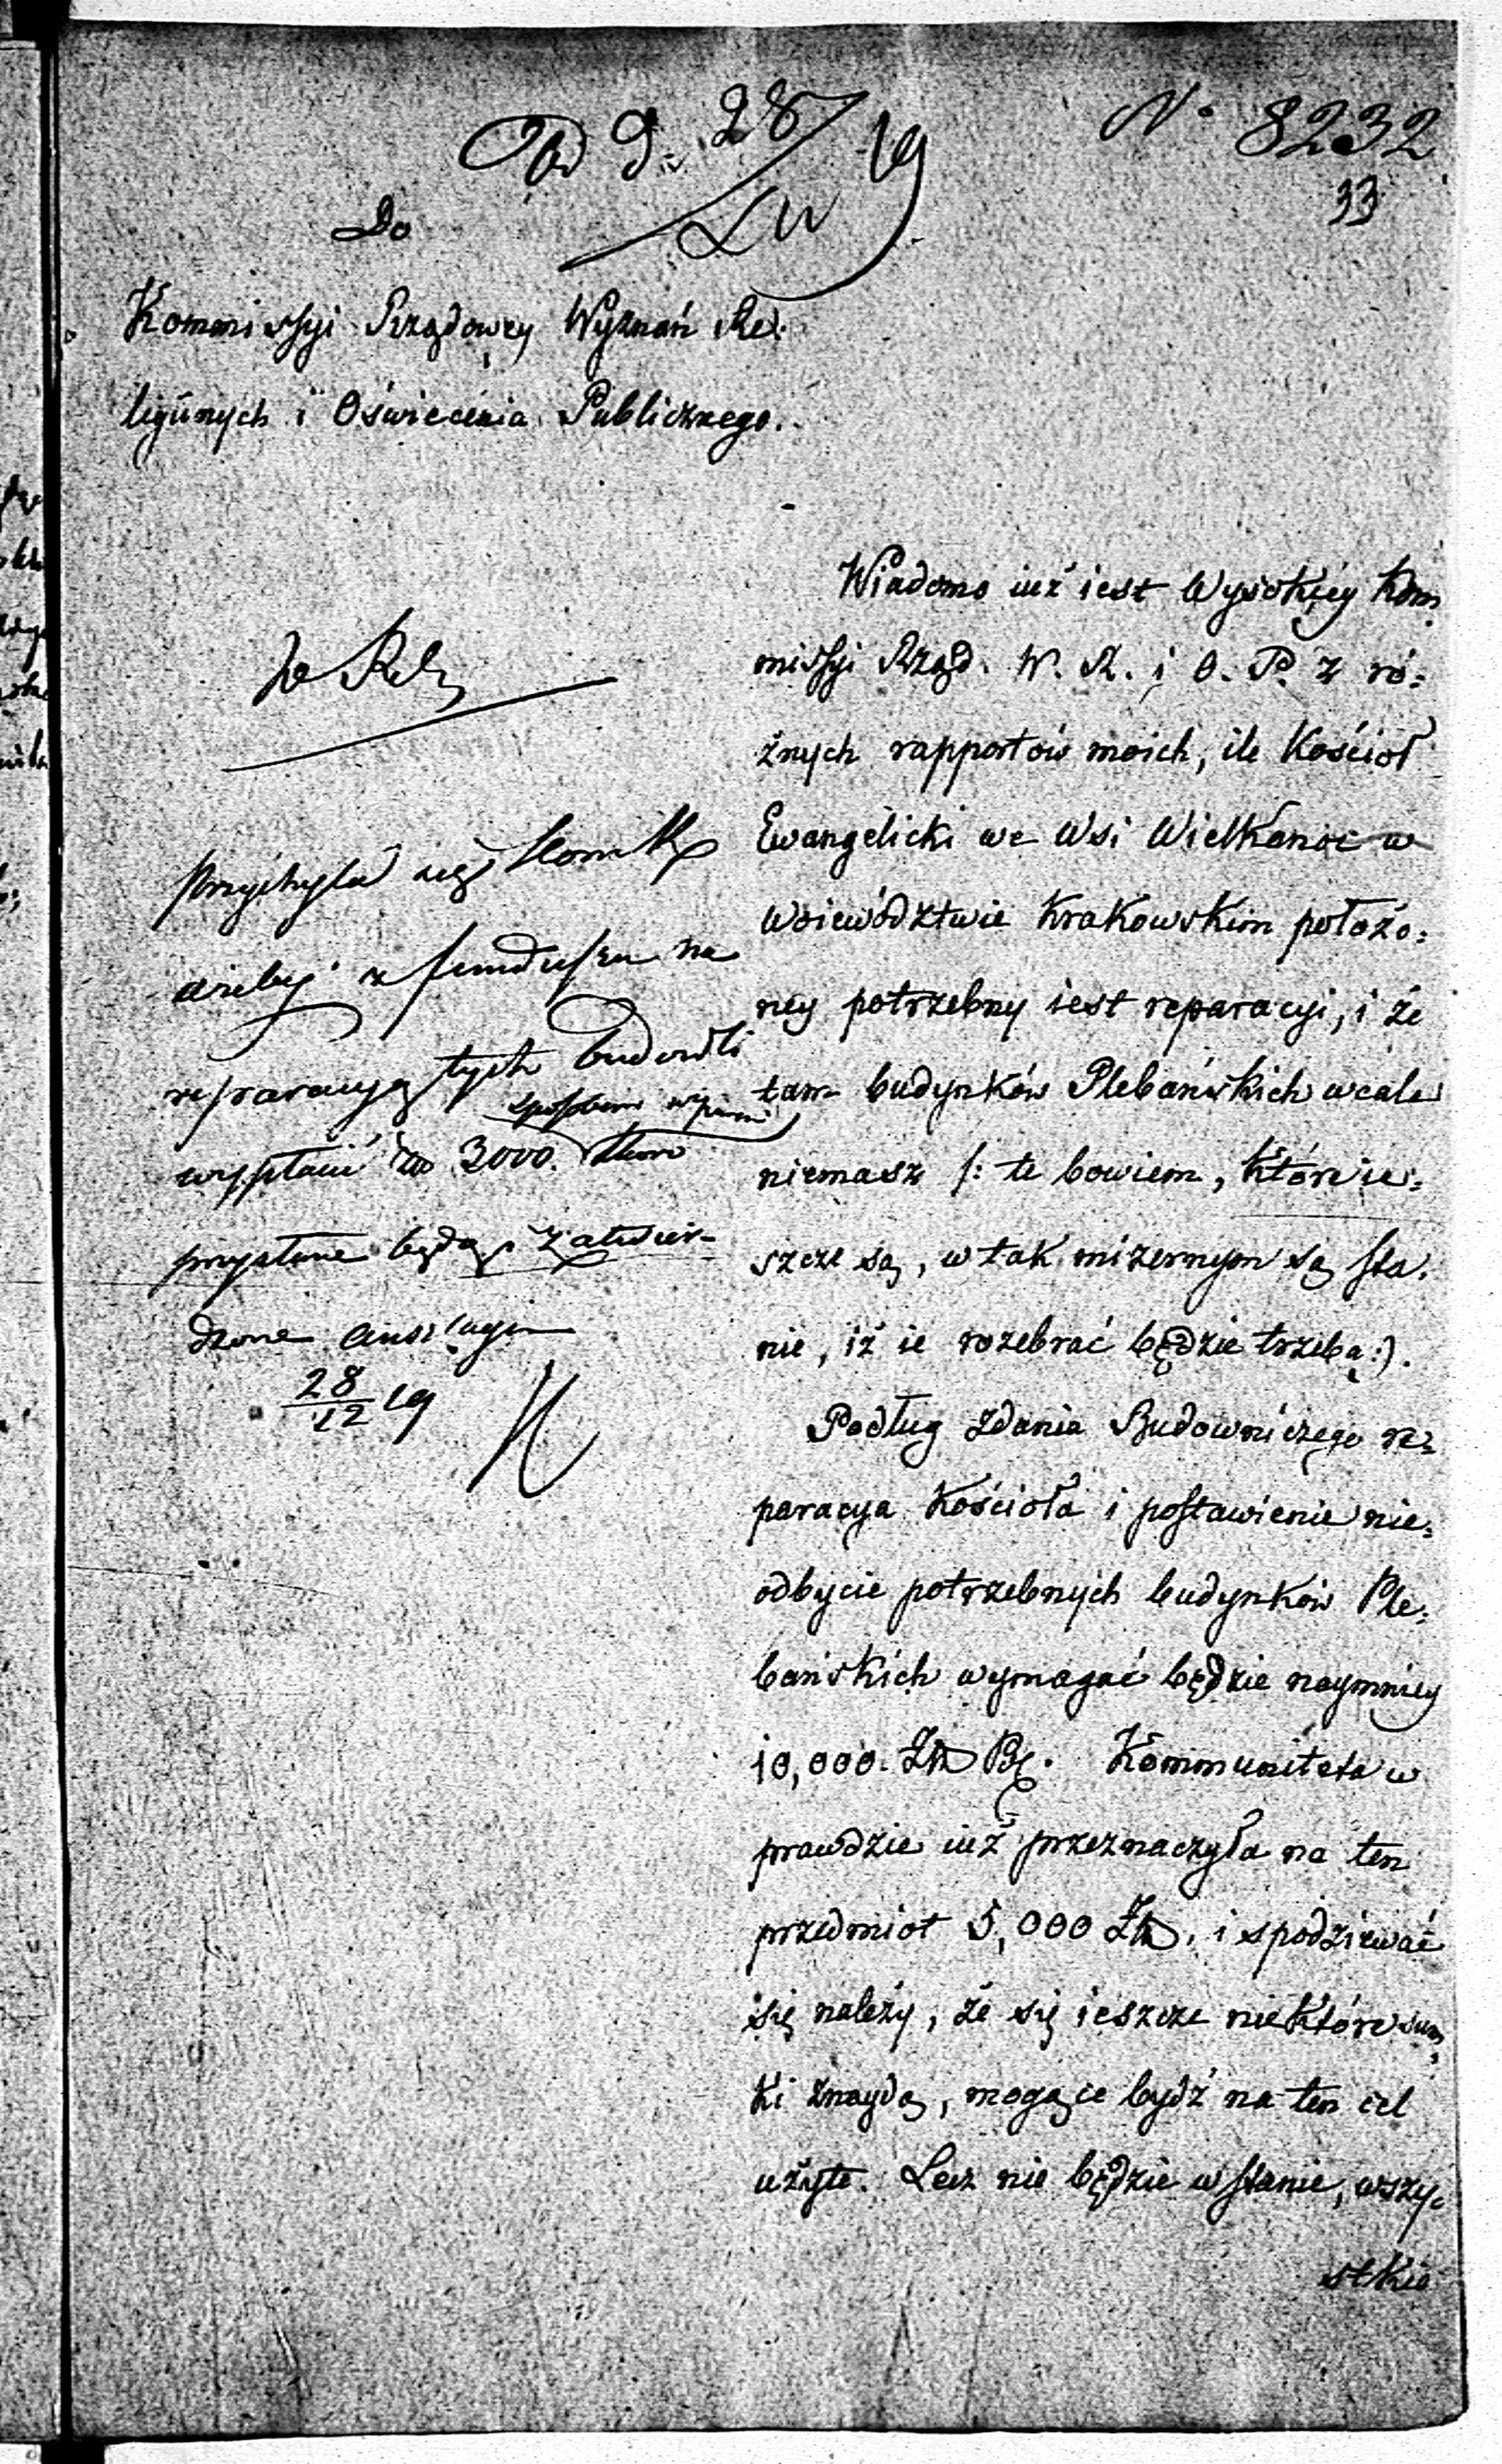 Nº 8232
33
Od d. 28/Xbr 19
Do
Kommissyi Rządowey Wyznań Re:
ligiinych i Oświecenia Publicznego.
Wiadomo iuż iest Wysokiey Kom¸
missyi Rząd. W. R. i O. P. z ró:
żnych rapportów moich, ile Kościoł
Ewangelicki we Wsi Wielkanoc w
Woiewództwie Krakowskim położo:
ney potrzebny iest reparacyi, i że
tam budynków Plebańskich wcale
niemasz /: te bowiem, które ie:
szcze są, w tak mizernym są sta:
nie, iż ie rozebrać będzie trzeba :).
Podług zdania Budowniczego re:
paracya Kościoła i postawienie nie:
odbycie potrzebnych budynków Ple:
bańskich wymagać będzie naymniey
10,000. Zł Pl. Kommuniteta w
prawdzie iuż przeznaczyła na ten
przedmiot 5,000 Zł. i spodziewać
się należy, że się ieszcze niektóre sum,
ki znaydą, mogące bydź na ten cel
użyte. Lecz nie będzie w stanie, wszy:
stkie
przychyla się
ażeby z funduszu na
reparacyą tych budowli
wypłacić do 3000.
przysłane będą zatwier-
dzone anszlagi
28/12 19